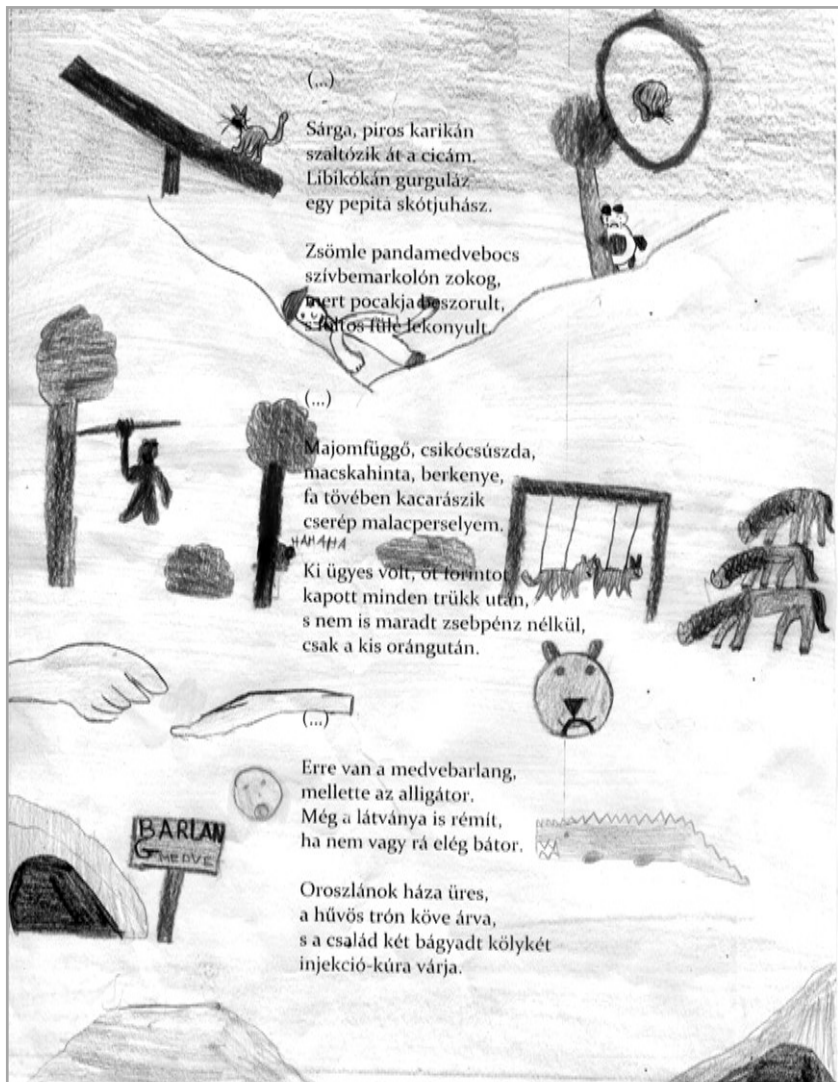 (...)
Sárga, piros karikán
szaltózik át a cicám.
Libikókán gurguláz
egy pepita skótjuhász.
Zsömle pandamedvebocs
szívbemarkolón zokog,
mert pocakja beszorult,
s foltos füle lekonyult.
(...)
Majomfüggő, csikócsúszda,
macskahinta, berkenye,
fa tövében kacarászik
cserép malacperselyem.
HAHAHA
Ki ügyes volt, öt forintot
kapott minden trükk után,
s nem is maradt zsebpénz nélkül,
csak a kis orángután.
(...)
Erre van a medvebarlang,
mellette az alligátor.
Még a látványa is rémít,
ha nem vagy rá elég bátor.
BARLAN
G MEDVE
Oroszlánok háza üres,
a hűvös trón köve árva,
s a család két bágyadt kölykét
injekció-kúra várja.